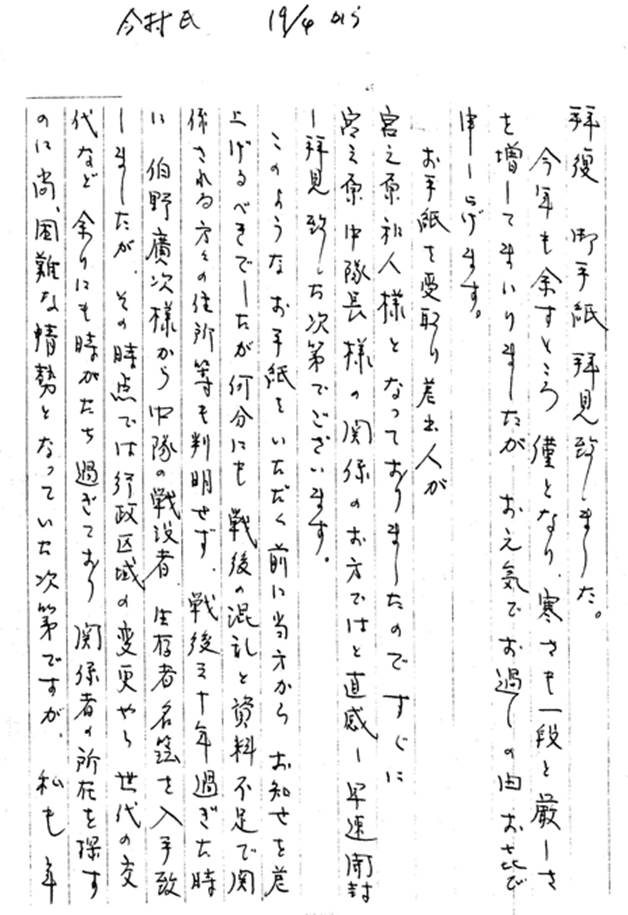 今村氏 19/4
拝復 御手紙拝見致しました。
今年も余すところ僅となり、寒さも一段と厳しさ
を増してまいりましたが お元気でお過しの由お喜び
申し上げます。
お手紙を受取り差出人が
宮之原 様となっておりましたのですぐに
宮之原中隊長様の関係のお方ではと直感し早速開封
し拝見致した次第でございます。
このようなお手紙をいただく前に当方から お知せを差
上げるべきでしたが何分にも戦後の混乱と資料不足で関
係される方々の住所等も判明せず、戦後三十年過ぎた時
に 伯野廣次様から中隊の戦没者、生存者名簿を入手致
しましたが、その時点では行政区域の変更やら世代の交
代など 余りにも時がたち過ぎており 関係者の所在を探す
のに尚、困難な情勢となっていた次第ですが、私も年